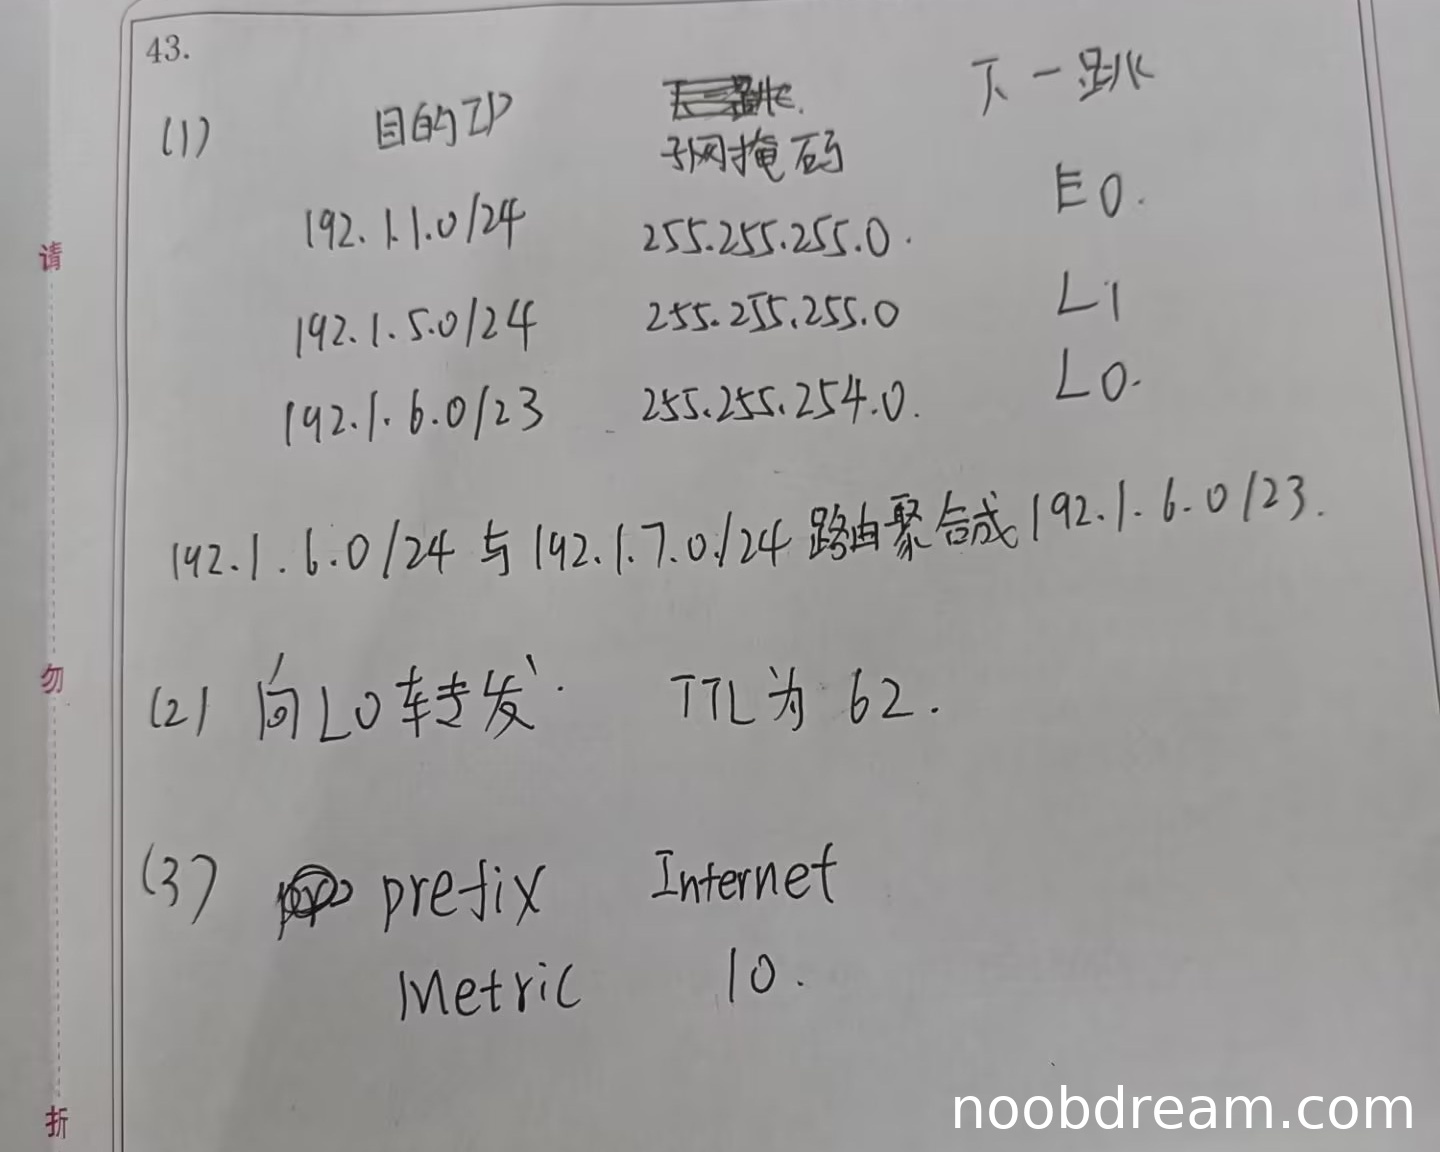 43.
(1) 目的IP 子网掩码 下一跳
192.1.1.0/24 255.255.255.0. E0.
192.1.5.0/24 255.255.255.0 L1
192.1.6.0/23 255.255.254.0. L0.
192.1.6.0/24 与 192.1.7.0/24 路由聚合成 192.1.6.0/23.
(2) 向L0转发. TTL为 62.
(3) prefix Internet
Metric 10.
请
勿
折
noobdream.com